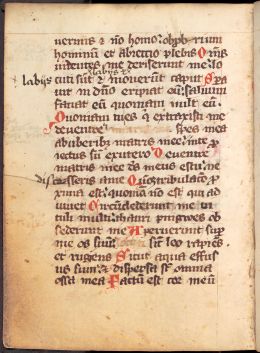 uermis et no homo: obprobrium
hominum et abiectio plebis Oms
uidentes me deriserunt me lo
labijs
cuti sut et mouerut caput Spa
uit in dno eripiat eu: saluum
faciat eum quoniam uult eu.
Quoniam tu es q extraxisti me
de uentre spes mea
ab uberibz matris mee: in te p
iectus su ex utero De uentre
matris mee ds meus es tu: ne
discesseris a me Qm tribulatio p
xima est: quonia no est qui ad
iuuet Circumdederunt me ui
tuli multi: thauri pingwes ob
sederunt me Aperuerunt sup
me os suu: sic leo rapies
et rugiens Sicut aqua effus
us sum: et dispersa st omnia
ossa mea Factu est cor meu